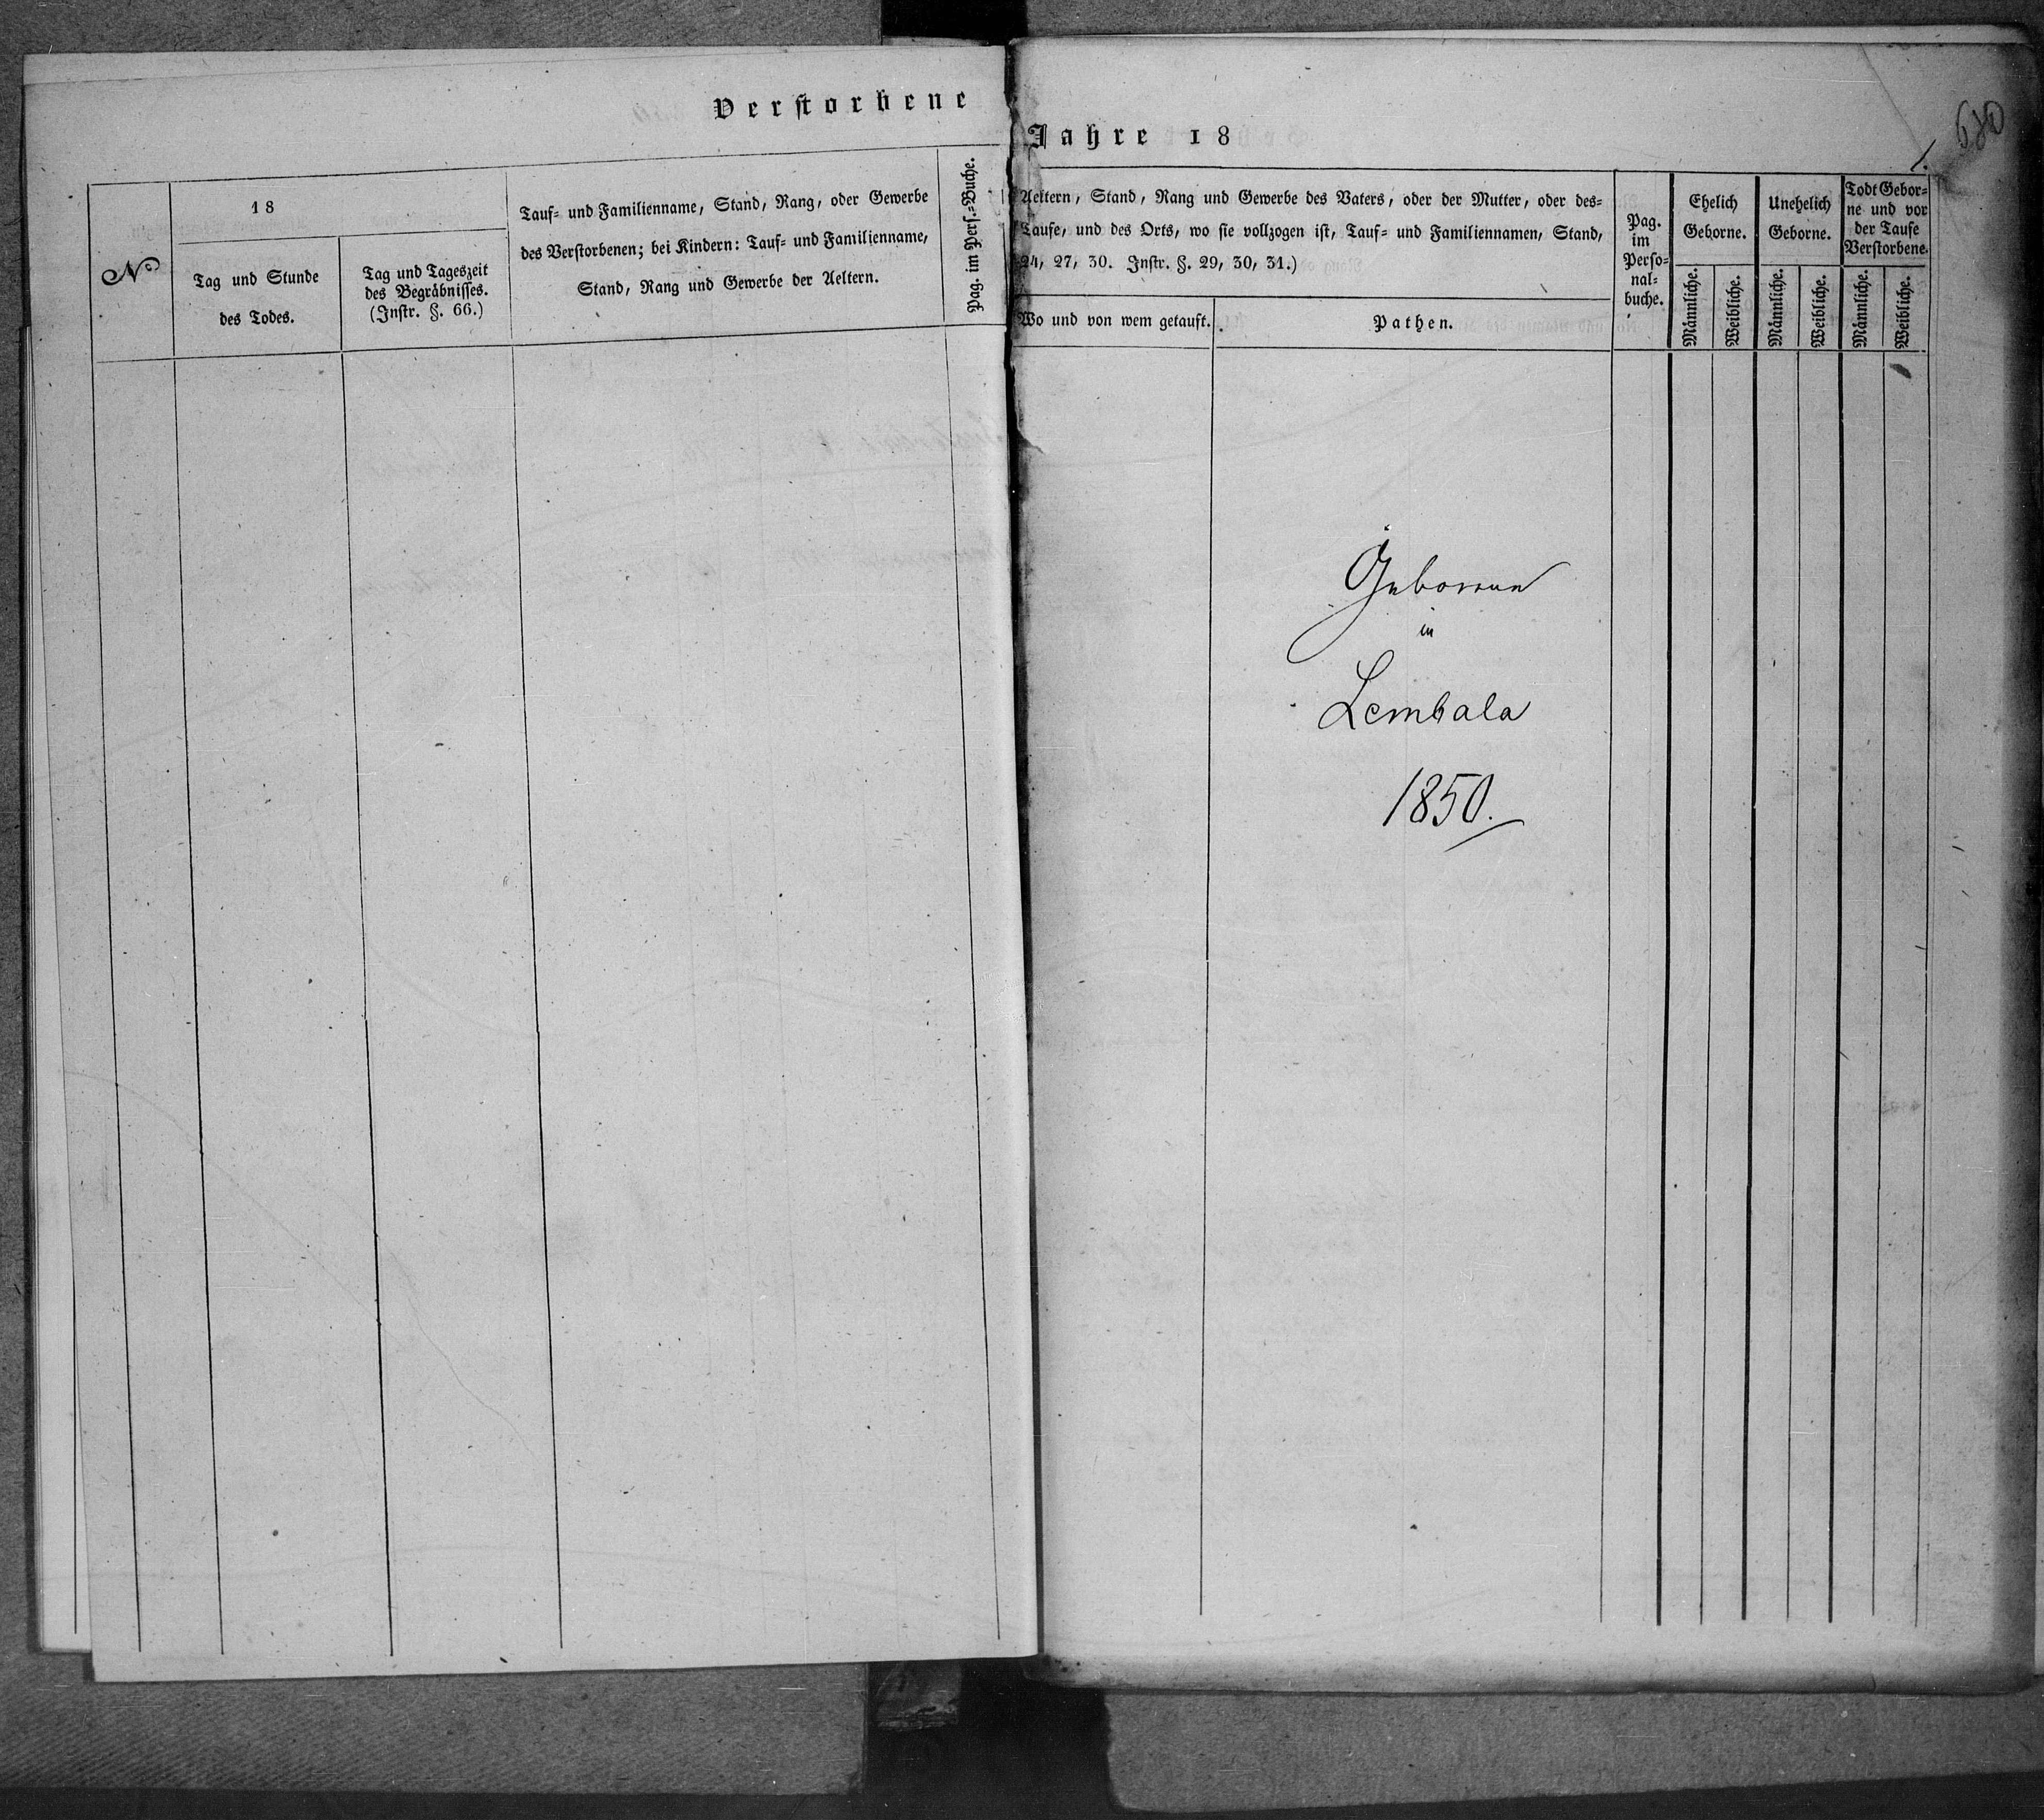 Verstorbene
№
18
Tag und Stunde
des Todes.
Tag und Tageszeit
des Begräbnisses.
(Instr. §. 66.)
Tauf- und Familienname, Stand, Rang, oder Gewerbe
des Verstorbenen; bei Kindern: Tauf- und Familienname,
Stand, Rang und Gewerbe der Aeltern.
Pag. im Pers.-Buche.
630
Jahre 18
1.
Aeltern, Stand, Rang und Gewerbe des Vaters, oder der Mutter, oder des-
Taufe, und des Orts, wo sie vollzogen ist, Tauf- und Familiennamen, Stand,
24, 27, 30. Instr. §. 29, 30, 31.)
Wo und von wem getauft.
Pathen.
Pag.
im
Perso-
nal-
buche.
Ehelich
Geborne.
Männliche.
Weibliche.
Unehelich
Geborne.
Männliche.
Weibliche.
Todt Gebor-
ne und vor
der Taufe
Verstorbene.
Männliche.
Weibliche.
Geborene
in
Lembala
1850.